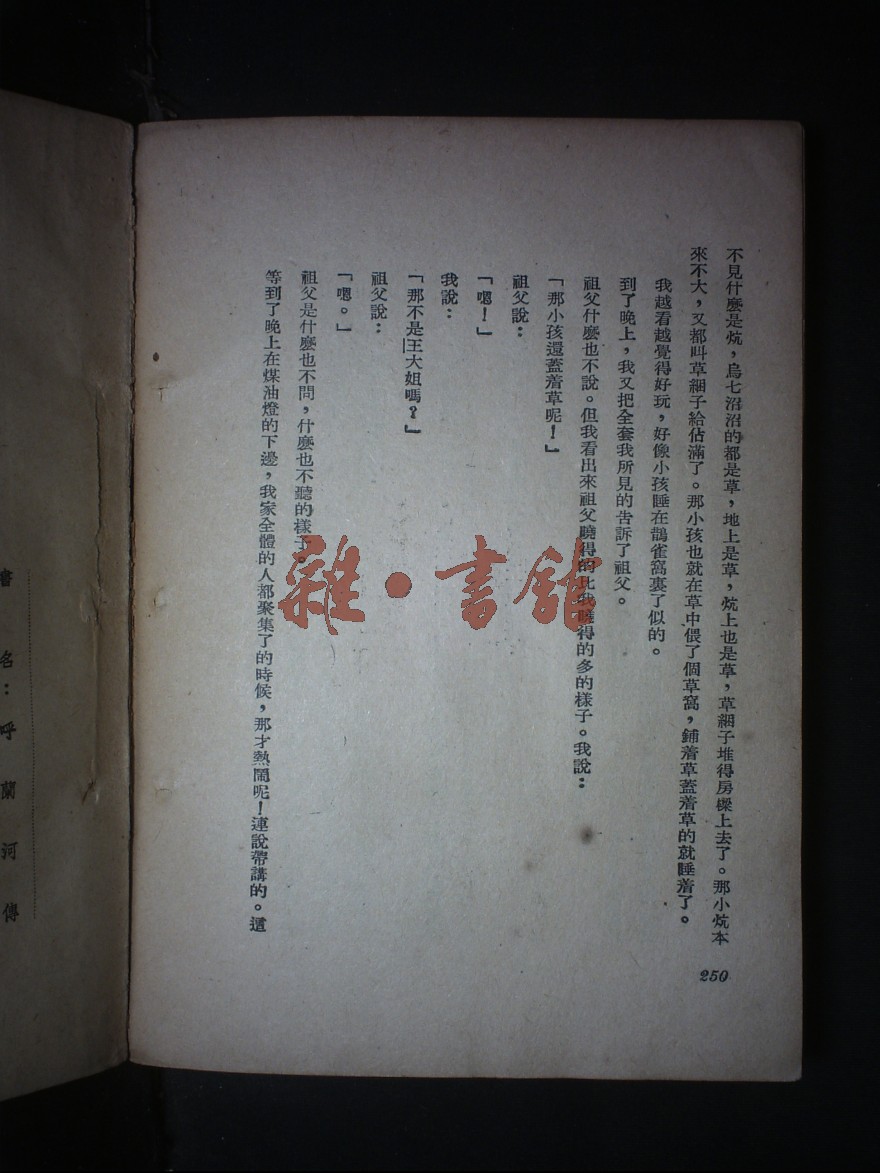 不見什麼是炕，烏七沼沼的都是草，地上是草，炕上也是草，草綑子堆得房樑上去了。那小炕本
來不大，又都叫草綑子給佔滿了。那小孩也就在草中偎了個草窩，鋪着草蓋着草的就睡着了。
我越看越覺得好玩，好像小孩睡在鵲雀窩裏了似的。
到了晚上，我又把全套我所見的告訴了祖父。
祖父什麼也不說。但我看出來祖父曉得的比我曉得的多的樣子。我說：
「那小孩還蓋着草呢！」
祖父說：
「嗯！」
我說：
「那不是王大姐嗎？」
祖父說：
「嗯。」
祖父是什麼也不問，什麼也不聽的樣子。
等到了晚上在煤油燈的下邊，我家全體的人都聚集了的時候，那才熱鬧呢！連說帶講的。這
250
書名：呼蘭河傳
雜·書館